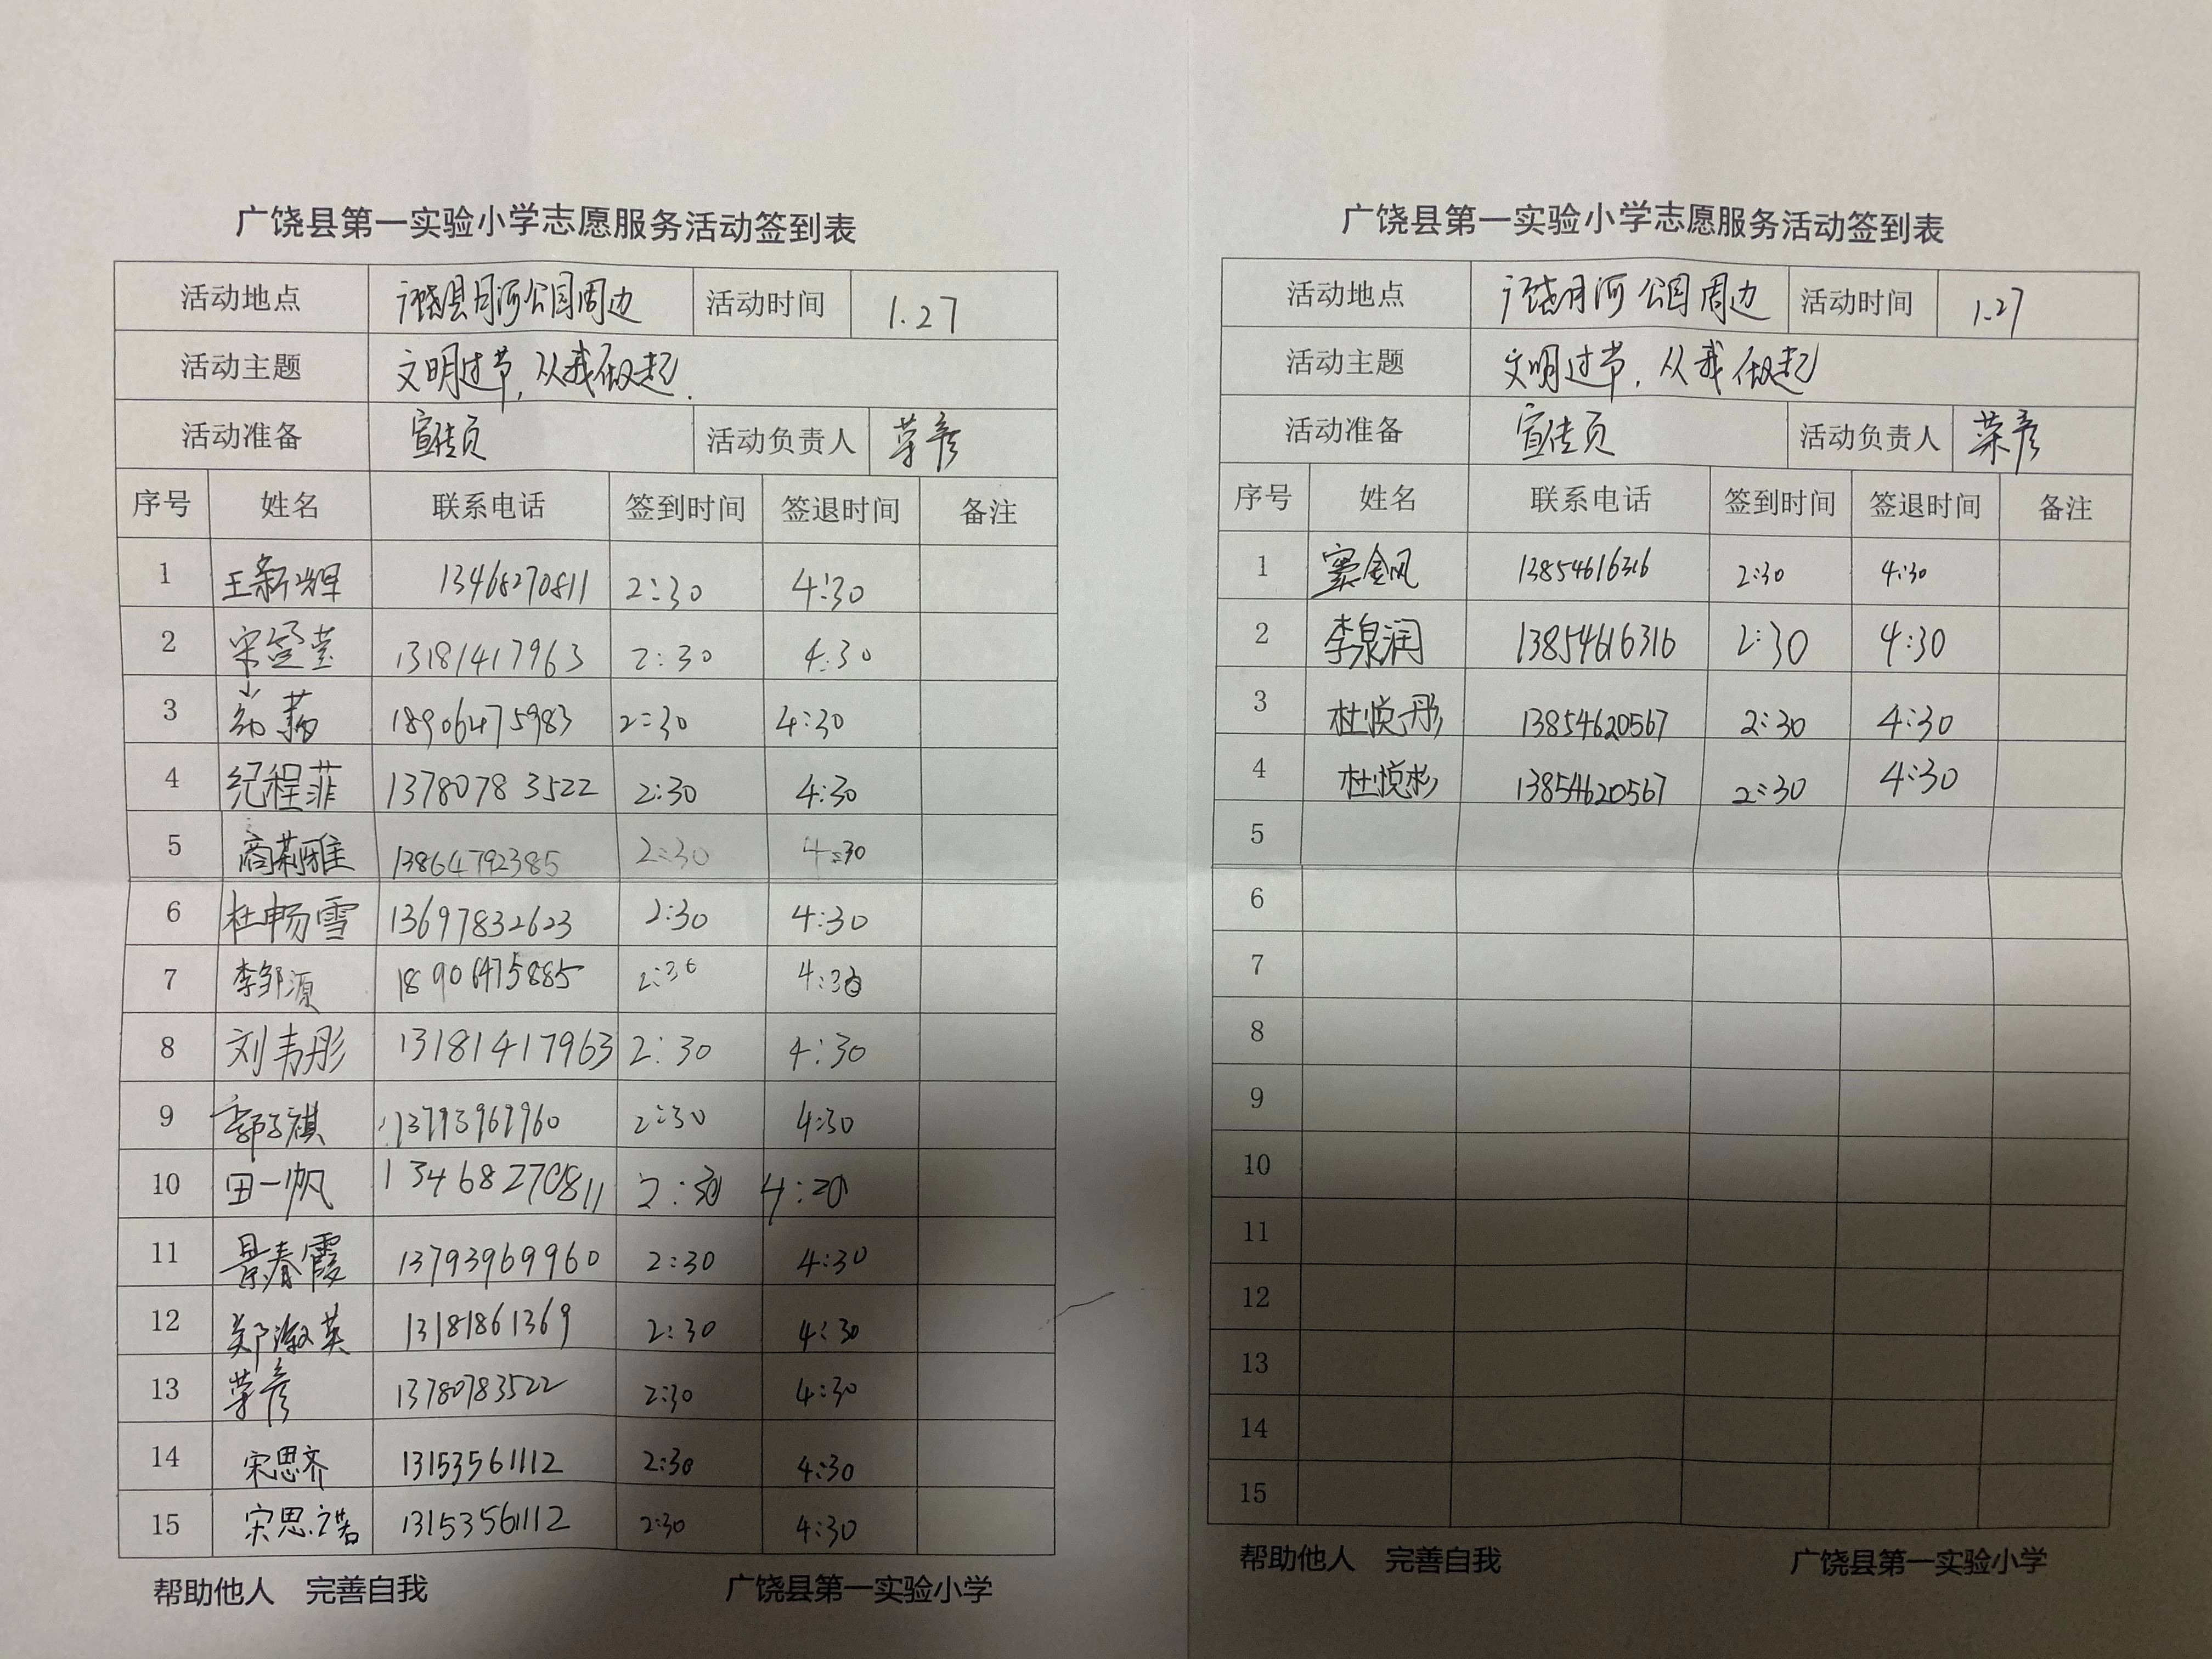 广饶县第一实验小学志愿服务活动签到表
活动地点 广饶县月河公园周边 活动时间 1.27
活动主题 文明过节,从我做起.
活动准备 宣传页 活动负责人 荣彦
序号 姓名 联系电话 签到时间 签退时间 备注
1 王新辉 13468270811 2:30 4:30
2 宋莹 13181417963 2:30 4:30
3 18906475983 2:30 4:30
4 纪程菲 13780783522 2:30 4:30
5 商莉雅 13864792385 2:30 4:30
6 杜畅雪 13697832623 2:30 4:30
7 李邹源 18906475885 2:30 4:30
8 刘韦彤 13181417963 2:30 4:30
9 郭子祺 2:30 4:30
10 田一帆 13468270811 2:30 4:20
11 景春霞 13793969960 2:30 4:30
12 郑淑英 13181861369 2:30 4:30
13 荣彦 13780783522 2:30 4:30
14 宋思齐 13153561112 2:30 4:30
15 宋思诺 13153561112 2:30 4:30
帮助他人 完善自我 广饶县第一实验小学
广饶县第一实验小学志愿服务活动签到表
活动地点 广饶月河公园周边 活动时间 1.27
活动主题 文明过节,从我做起
活动准备 宣传页 活动负责人 荣彦
序号 姓名 联系电话 签到时间 签退时间 备注
1 窦金凤 13854616316 2:30 4:30
2 李泉润 13854616316 2:30 4:30
3 杜悦彤 13854620567 2:30 4:30
4 杜悦彬 13854620567 2:30 4:30
5
6
7
8
9
10
11
12
13
14
15
帮助他人 完善自我 广饶县第一实验小学